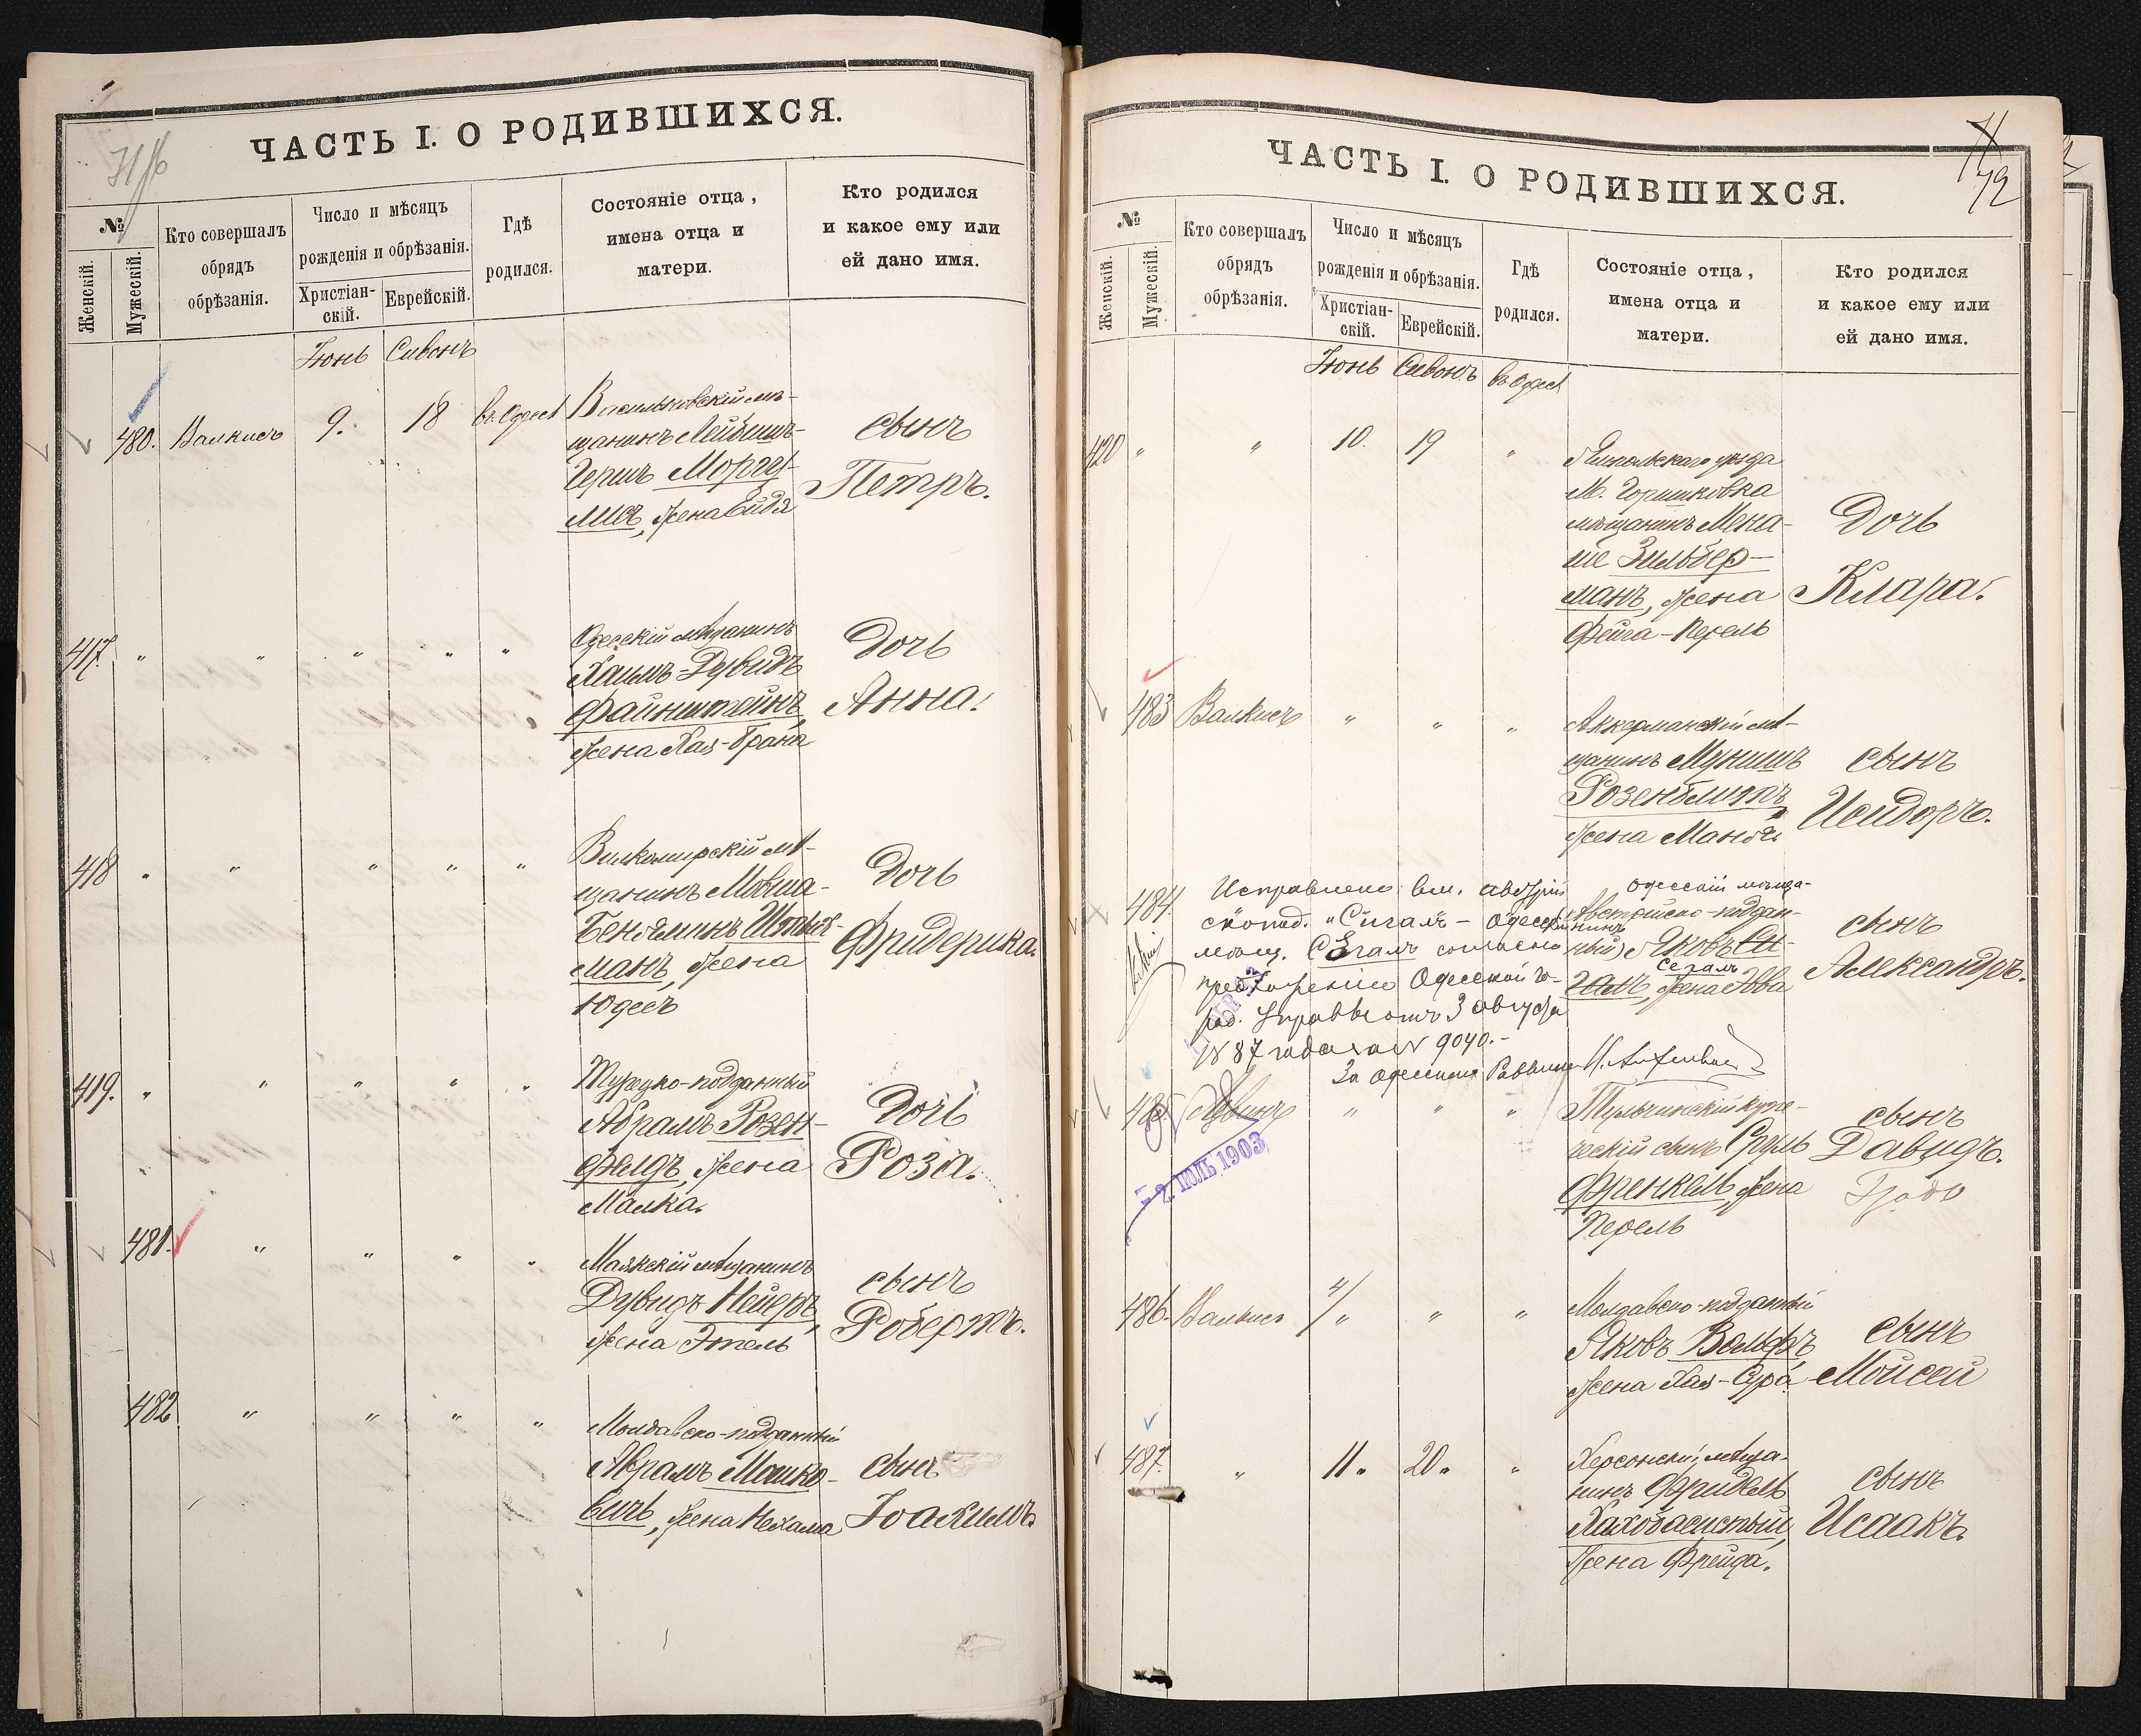 ЧАСТЬ I. О РОДИВШИХСЯ.
№
Женскій.
Мужескій.
Кто совершалъ
обрядъ
обрѣзанія.
Число и мѣсяцъ
рожденія и обрѣзанія.
Христіан-
скій.
Еврейскій.
Гдѣ
родился.
Состояніе отца,
имена отца и
матери.
Кто родился
и какое ему или
ей дано имя.
Іюнь Сивонъ
480. Валкисъ 9. 18 въ Одессѣ
Васильковскій мѣ-
щанинъ Лейбишъ-
Гершъ Моргу-
лисъ, жена Ейдя
сынъ
Петръ.
417. " " " " "
Одесскій мѣщанинъ
Хаимъ-Дувидъ
Файнштейнъ,
жена Хая-Брана
Дочь
Анна.
418 " " " " "
Вилкомирскій мѣ-
щанинъ Мовша-
Беньяминъ
манъ, жена
Юдесъ
Дочь
Фридерика.
419. " " " " "
Турецко-подданный
Абрамъ Розен-
фелдъ, жена
Малка.
Дочь
Роза.
481. " " " "
Маякскій мѣщанинъ
Дувидъ Нейеръ,
жена Этель
сынъ
Робертъ.
482 " " " "
Молдавско-подданный
Абрамъ Мошко-
вичъ, жена Нехама
сынъ
Іоакимъ
ЧАСТЬ I. О РОДИВШИХСЯ.
72
№
Женскій.
Мужескій.
Кто совершалъ
обрядъ
обрѣзанія.
Число и мѣсяцъ
рожденія и обрѣзанія.
Христіан-
скій.
Еврейскій.
Гдѣ
родился.
Состояніе отца,
имена отца и
матери.
Кто родился
и какое ему или
ей дано имя.
Іюнь Сивонъ въ Одессѣ
420 " " 10. 19 "
Ямпольскаго уѣзда
М. Горишковка
мѣщанинъ Мена-
ше Зильбер-
манъ, жена
Фейга-Перель
Дочь
Клара.
483 Валкисъ " " "
Аккерманскій мѣ-
щанинъ Мунишъ
Розенблитъ
жена Мандя
сынъ
Исидоръ.
484.
Исправлено вм. австрій
скопод. "Сигалъ" - Одесскій
мѣщ. Сегалъ согласно
предложенію Одесской го-
род. Управы отъ 3 августа
1887 года за № 9040.-
За Одесскаго Раввина
Одесскій мѣща-
нинъ
Австрійско-поддан-
ный) Яковъ Си-
Сегалъ
галъ, жена Эва
сынъ
Александръ.
485. Левинъ " " "
2 ІЮЛЬ 1903
Тульчинскій купе-
ческій сынъ Сруль
Френкель, жена
Перель
сынъ
Давидъ.
486. Валкисъ " " "
Молдавско-подданный
Яковъ Вольфъ
жена Хая-Сура
сынъ
Мойсей
487. " 11. 20. "
Херсонскій мѣща-
нинъ Фридель
жена Фрейда.
сынъ
Исаакъ.